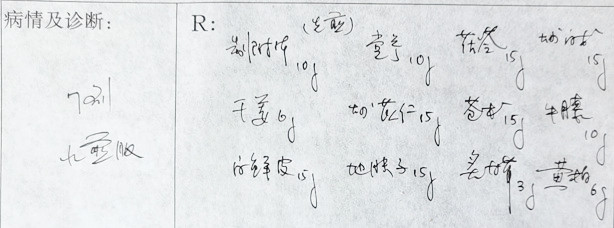 病情及诊断:
7剂
水煎服
R:
(先煎)
制附片10g 党参10g 茯苓15g 炒白术15g
干姜6g 炒苡仁15g 苍术15g 牛膝10g
白鲜皮15g 地肤子15g 炙甘草3g 黄柏6g